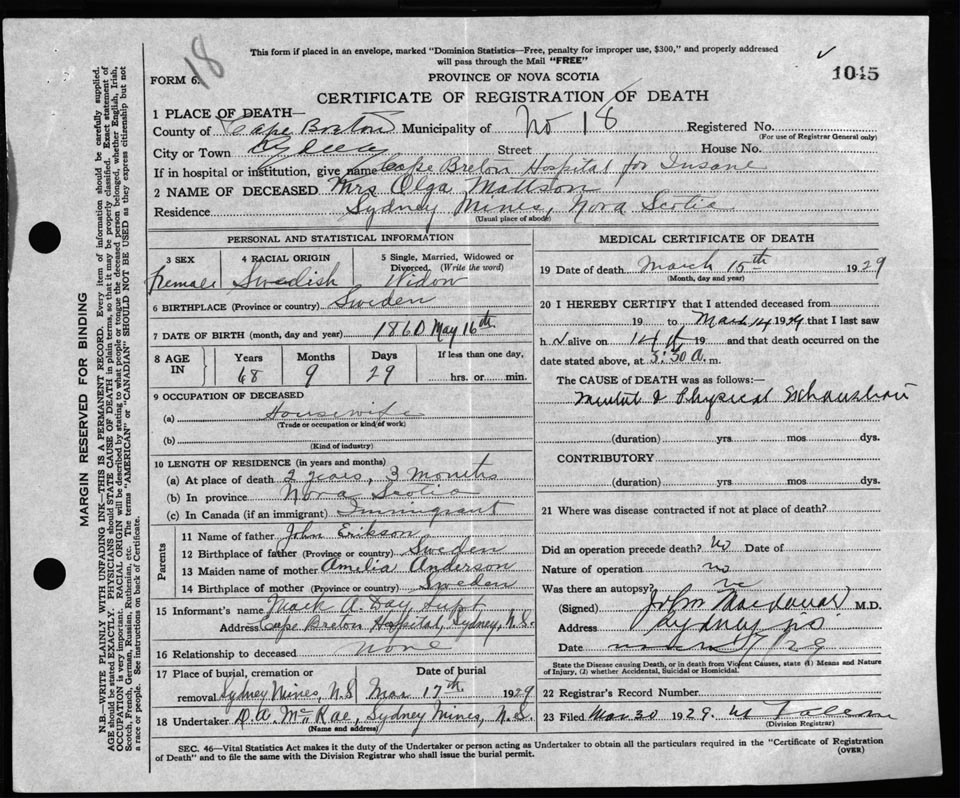 18
This form if placed in an envelope, marked "Dominion Statistics—Free, penalty for improper use, $300," and properly addressed
will pass through the Mail "FREE"
FORM 6.
PROVINCE OF NOVA SCOTIA
1045
CERTIFICATE OF REGISTRATION OF DEATH
1 PLACE OF DEATH—
County of Cape Breton Municipality of No 18 Registered No.
(For use of Registrar General only)
City or Town Sydney Street House No.
If in hospital or institution, give name Cape Breton Hospital for Insane
2 NAME OF DECEASED Mrs Olga Mattson
Residence Sydney Mines, Nova Scotia
(Usual place of abode)
PERSONAL AND STATISTICAL INFORMATION
3 SEX 4 RACIAL ORIGIN 5 Single, Married, Widowed or
Divorced. (Write the word)
Female Swedish Widow
6 BIRTHPLACE (Province or country) Sweden
7 DATE OF BIRTH (month, day and year) 1860 May 16th
8 AGE IN Years Months Days If less than one day,
68 9 29 hrs. or min.
9 OCCUPATION OF DECEASED
(a) Housewife
(Trade or occupation or kind of work)
(b)
(Kind of industry)
10 LENGTH OF RESIDENCE (in years and months)
(a) At place of death 2 years, 3 months
(b) In province Nova Scotia
(c) In Canada (if an immigrant) Immigrant
Parents
11 Name of father John Erikson
12 Birthplace of father (Province or country) Sweden
13 Maiden name of mother Amelia Anderson
14 Birthplace of mother (Province or country) Sweden
15 Informant's name Mack A. Day, Supt
Address Cape Breton Hospital, Sydney, N.S.
16 Relationship to deceased None
17 Place of burial, cremation or Date of burial
removal Sydney Mines, N.S Mar 17th 1929
18 Undertaker D.A. McRae, Sydney Mines, N.S.
(Name and address)
MEDICAL CERTIFICATE OF DEATH
19 Date of death March 15th 1929
(Month, day and year)
20 I HEREBY CERTIFY that I attended deceased from
19 to March 14 1929 that I last saw
h alive on 14 19 and that death occurred on the
date stated above, at 5:30 a. m.
The CAUSE OF DEATH was as follows:—
Mental & Physical Exhaustion
(duration) yrs mos dys.
CONTRIBUTORY
(duration) yrs. mos dys.
21 Where was disease contracted if not at place of death?
Did an operation precede death? No Date of
Nature of operation no
Was there an autopsy? no
(Signed) John M.D.
Address Sydney NS
Date March 17/29
State the Disease causing Death, or in death from Violent Causes, state (1) Means and Nature
of Injury, (2) whether Accidental, Suicidal or Homicidal.
22 Registrar's Record Number
23 Filed Mar 30 1929.
(Division Registrar)
SEC. 46—Vital Statistics Act makes it the duty of the Undertaker or person acting as Undertaker to obtain all the particulars required in the "Certificate of Registration
of Death" and to file the same with the Division Registrar who shall issue the burial permit.
(OVER)
MARGIN RESERVED FOR BINDING
N.B.—WRITE PLAINLY WITH UNFADING INK—THIS IS A PERMANENT RECORD. Every item of information should be carefully supplied.
AGE should be stated EXACTLY. PHYSICIANS should STATE CAUSE OF DEATH in plain terms, so that it may be properly classified. Exact statement of
OCCUPATION is very important. RACIAL ORIGIN will be described by stating to what people or tongue the deceased person belonged, whether English, Irish,
Scotch, French, German, Russian, Ruthenian, etc. The terms "AMERICAN" or "CANADIAN" SHOULD NOT BE USED as they express citizenship but not
a race or people. See instructions on back of Certificate.